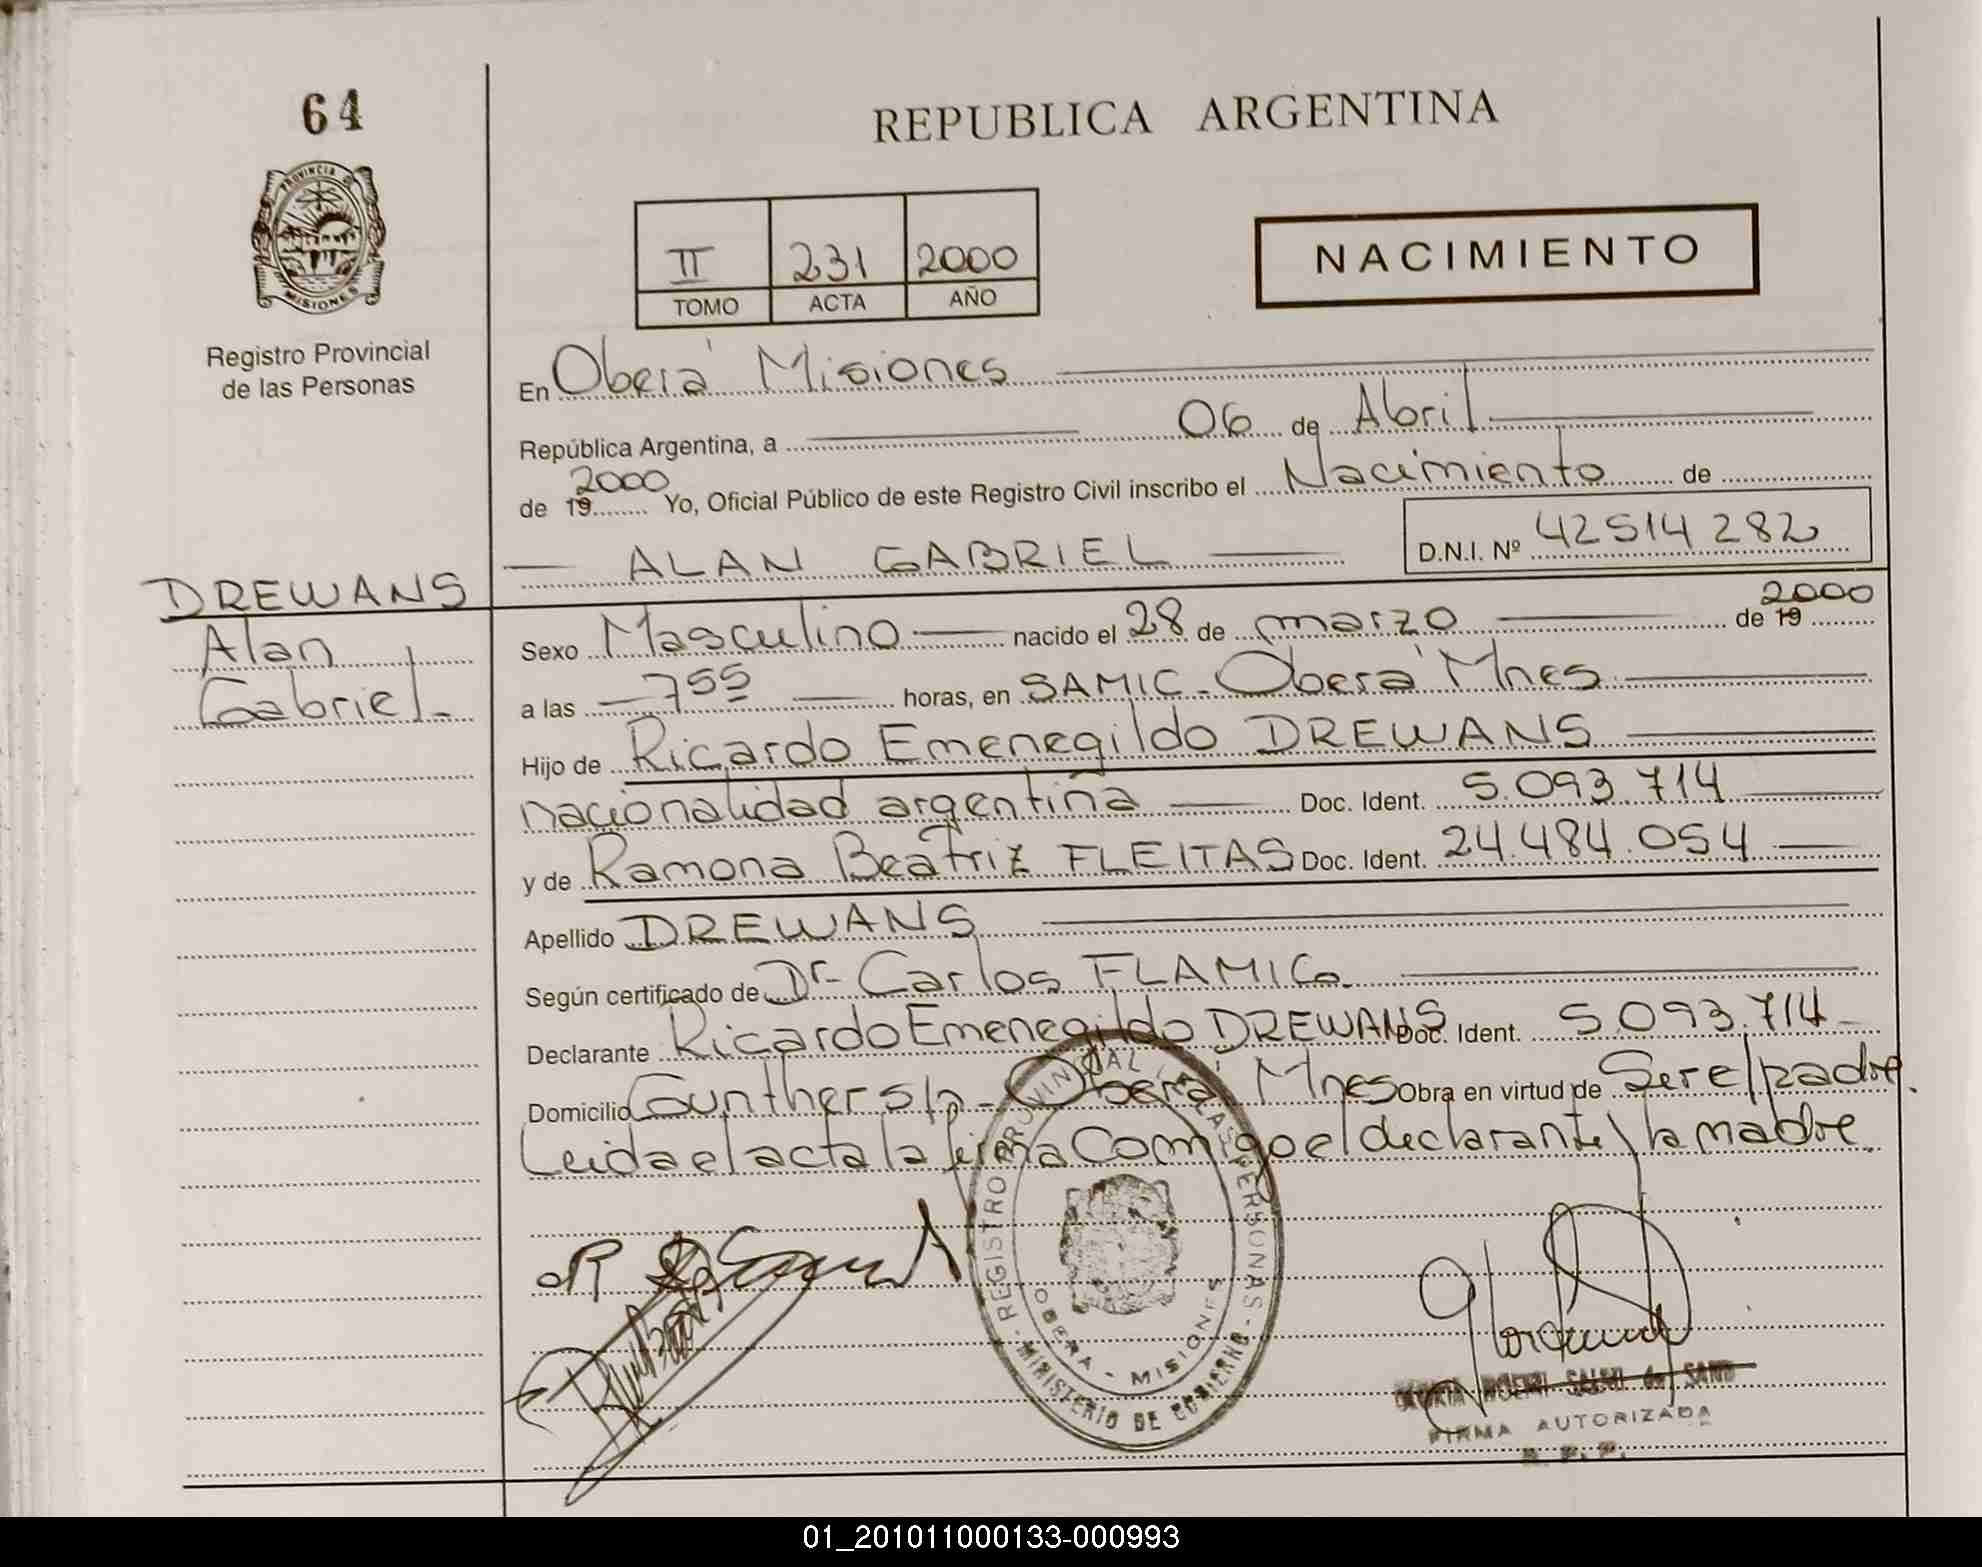 64
PROVINCIA DE
MISIONES
Registro Provincial
de las Personas
REPUBLICA ARGENTINA
II 231 2000
TOMO ACTA AÑO
NACIMIENTO
En Oberá Misiones
República Argentina, a 06 de Abril
de 19 2000 Yo, Oficial Público de este Registro Civil inscribo el Nacimiento de
ALAN GABRIEL D.N.I. Nº 42514282
DREWANS
Alan
Gabriel
Sexo Masculino nacido el 28 de marzo de 19 2000
a las 755 horas, en SAMIC - Oberá Mnes
Hijo de Ricardo Emenegildo DREWANS
nacionalidad argentina Doc. Ident. 5.093.714
y de Ramona Beatriz FLEITAS Doc. Ident. 24.484.054
Apellido DREWANS
Según certificado de Dr. Carlos
Declarante Ricardo Emenegildo DREWANS Doc. Ident. 5.093.714
Domicilio Gunther s/n - Oberá Mnes Obra en virtud de Ser el padre.
Leida el acta la firma Comigo el declarante y la madre.
REGISTRO PROVINCIAL DE LAS PERSONAS
OBERA - MISIONES
MINISTERIO DE GOBIERNO
FIRMA AUTORIZADA
R. P. P.
01_201011000133-000993